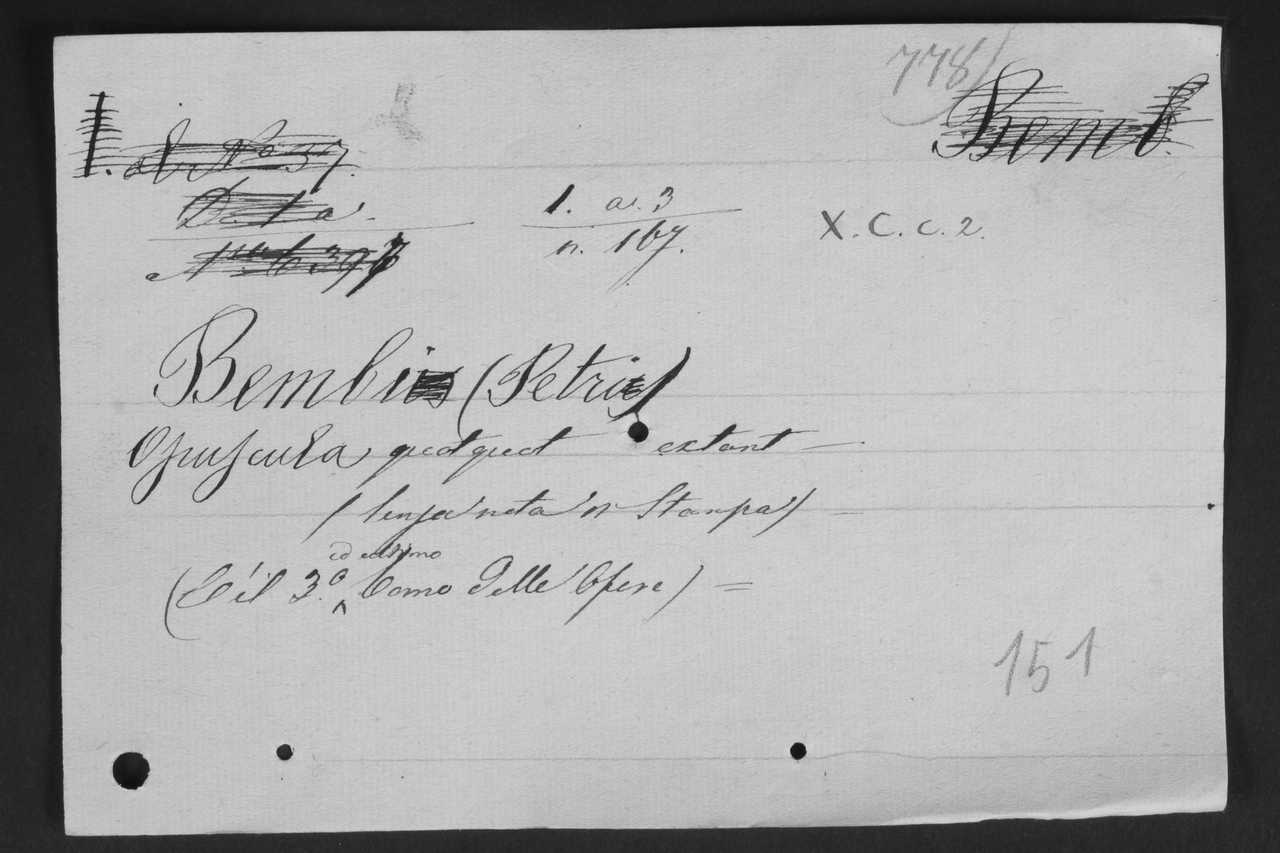 778
Bemb.
1. ar. 3
n. 167.
X. C. c. 2.
Bembi (Petri)
Opuscula quotquot extant —
(senza nota di Stampa) —
(È il 3.º ed ultimo tomo delle Opere) =
151